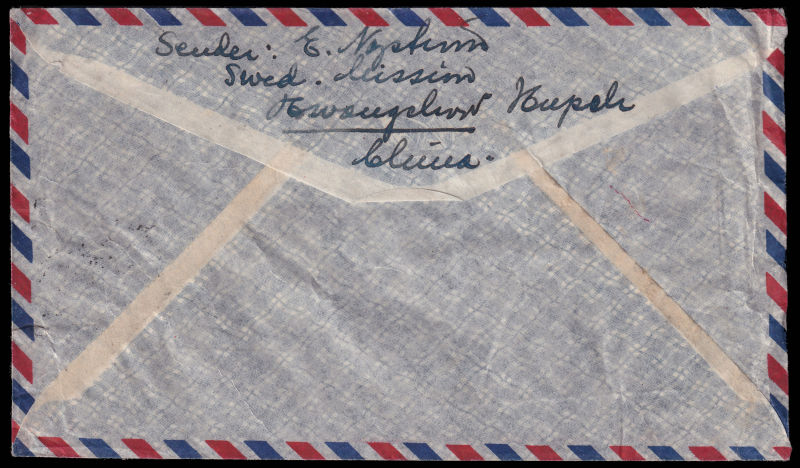 Sender: E. Nyström
Swed. Mission
Hwangchow Hupeh
China.